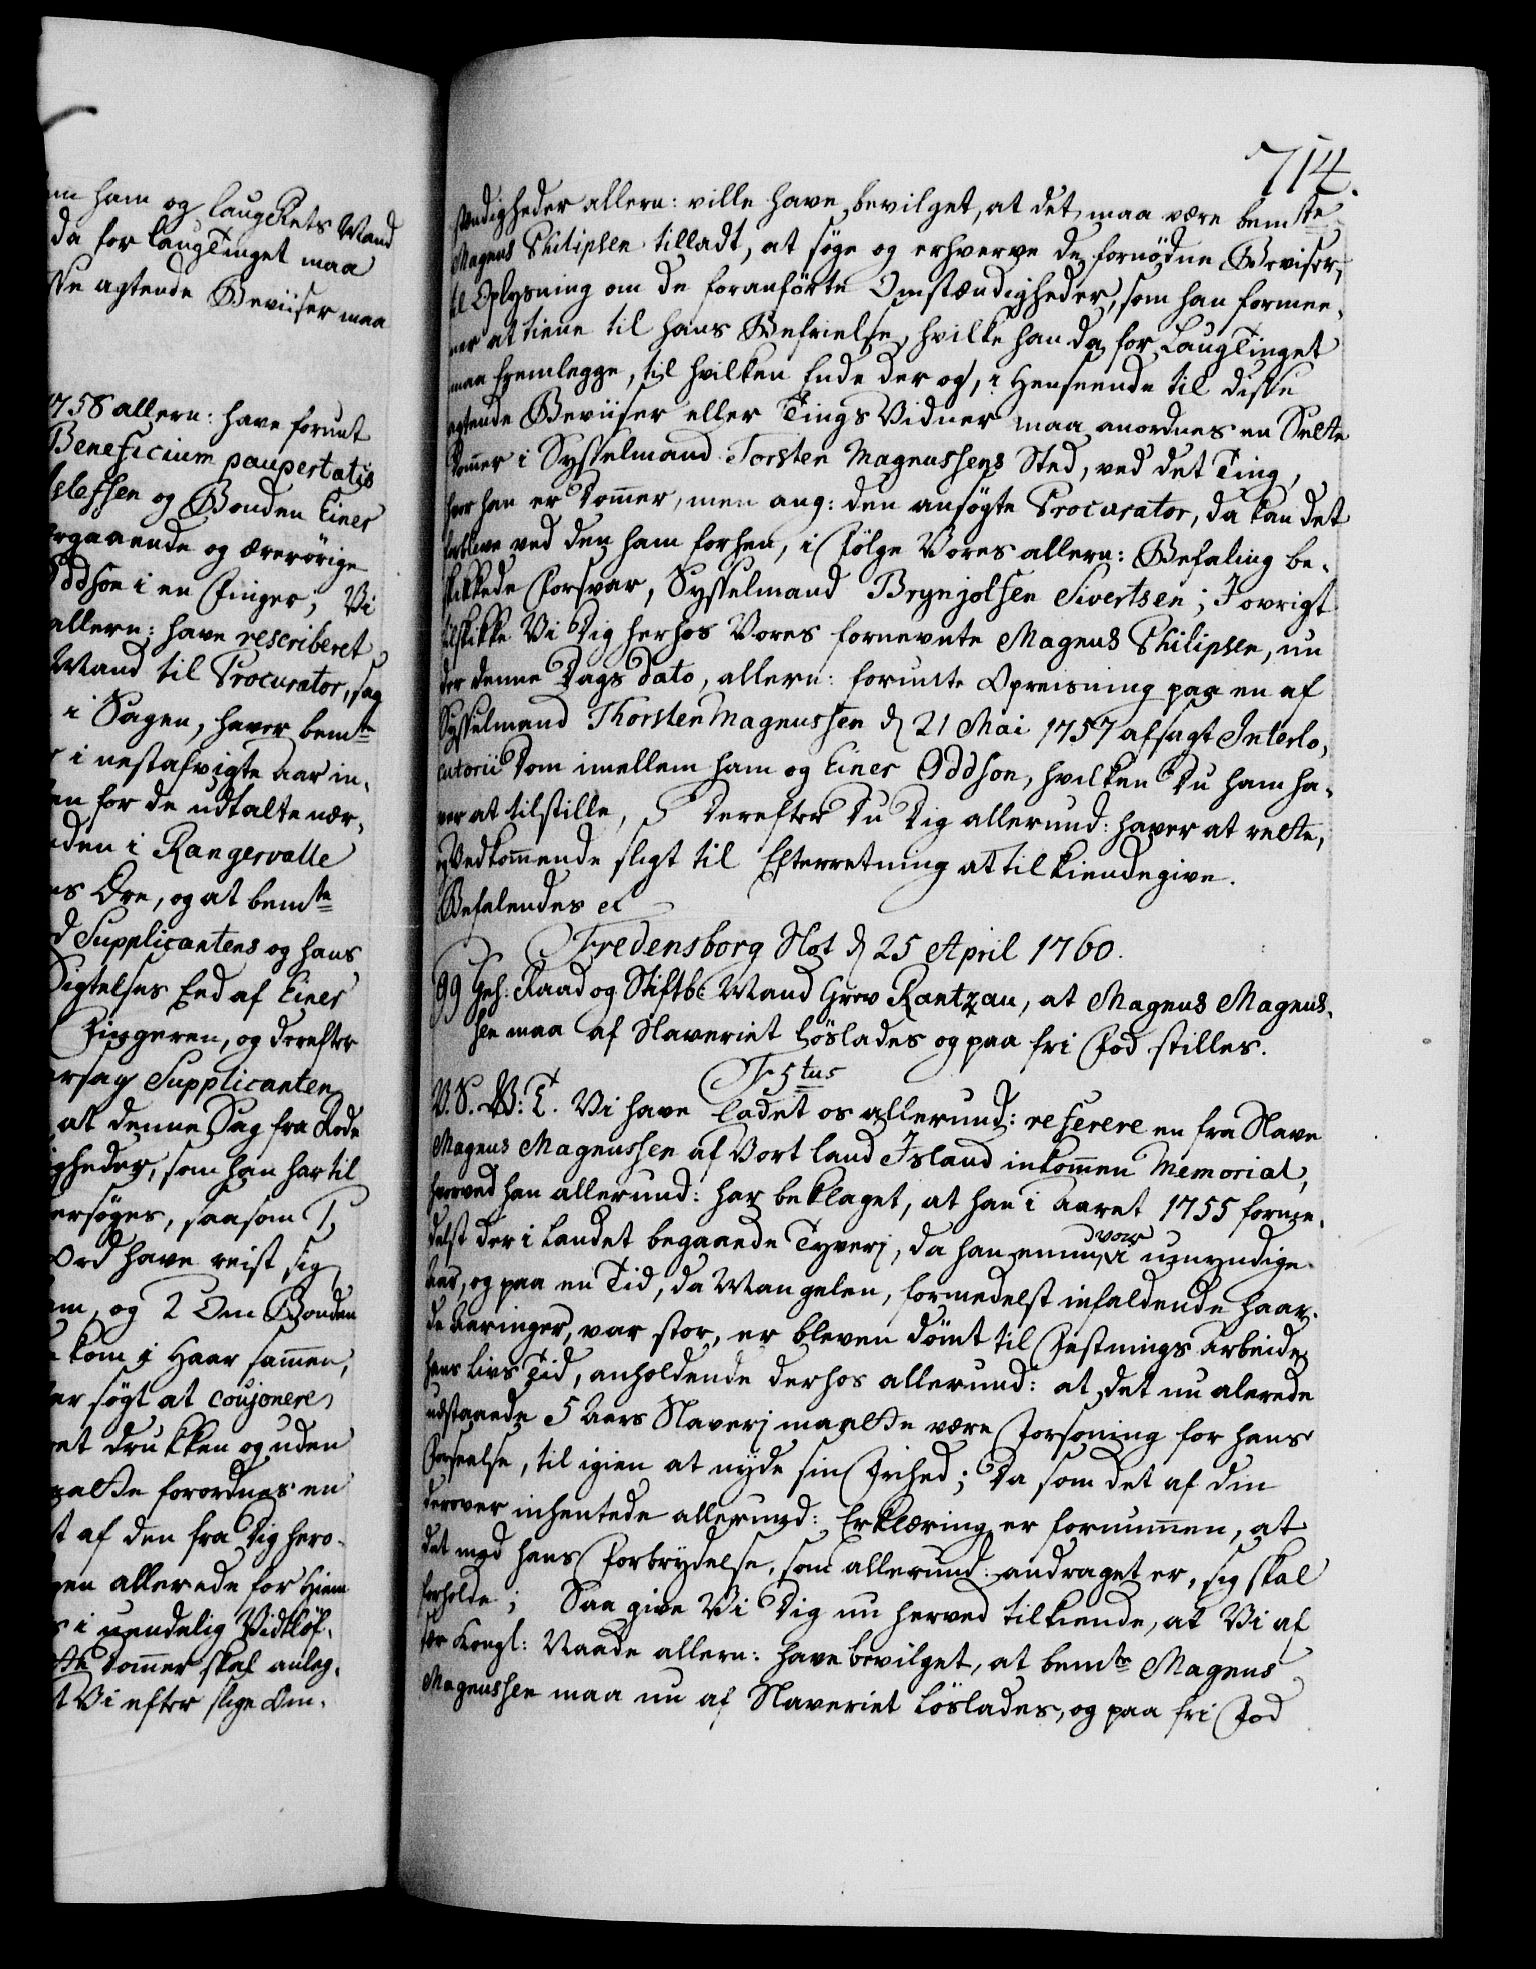 ham og laugRets Mænd
da for laugTinget maa
agtende Beviiser maa
1758 allern: have forunt
Beneficium paupertatis
slefsen og Bonden Einer
rgaaende og ærerörige
Oddson i en Finger; Vi
allern: have rescriberet
Mand til Procurator, sag
i Sagen, haver bemte
i nestafvigte Aar in-
en for de udtalte nær-
den i Rangervalle
Öre, og at bemte
Supplicantens og hans
Sigtelses Eed af Einer
Fingeren, og derefter
rsag Supplicanten
at denne Sag fra Rode
gheder, som han har til
ersöges, saasom 1,
Ord have reist sig
em, og 2 Om Bonden
kom i Haar sammen,
er sögt at coujonere
et drukken og uden
aatte forordnes en
t af den fra Dig hero-
gen allerede for Hiem
i uendelig Vidtlöf-
tte Dommer skal anleg-
t Vi efter slige Om-
714.
stændigheder allern: ville have bevilget, at det maa være bemte
Magnus Philipsen tilladt, at söge og erhverve de fornödne Beviser,
til Oplysning om de foranförte Omstændigheder, som han formee-
ner at tiene til hans Befrielse, hvilke han da for LaugTinget
maa fremlegge, til hvilken Ende der og, i Henseende til disse
agtende Beviiser eller Tings Vidner maa anordnes en Sette
Dommer i Sysselmand Torsten Magnussens Sted, ved det Ting,
hvor han er Dommer, men ang: den ansögte Procurator, da kan det
forblive ved den ham forhen, i Fölge Vores allern: Befaling be-
skikkede Forsvar, Sysselmand Brynjolfsen Sivertsen; I ovrigt
tilskikke Vi Dig herhos Vores fornevnte Magnus Philipsen, un-
der denne Dags Dato, allern: forundte Opreisning paa en af
Sysselmand Thorsten Magnussen d 21 Mai 1757 afsagt Interlo-
cutorii Dom imellem ham og Einer Oddson, hvilken Du ham ha-
ver at tilstille, Derefter Du Dig allerund: haver at rette,
og Vedkommende sligt til Efterretning at tilkiendegive.
Befalendes et
Fredensborg Slot d 25 April 1760.
99 Geh: Raad og Stiftbe Mand Grev Rantzau, at Magnus Magnus-
sen maa af Slaveriet löslades og paa fri Fod stilles.
F 5tus
V.S.W:T. Vi have ladet os allerund: referere en fra Slave
Magnus Magnussen af Vort land Island inkommen Memorial,
hvorved han allerund: har beklaget, at han i Aaret 1755 forme-
delst der i Landet begaaende Tyverj, da han ennu var i umyndige
Aar, og paa en Tid, da Mangelen, formedelst infaldende haar-
de Aaringer, var stor, er bleven dömt til Festnings Arbeide
hans livs Tid, anholdende derhos allerund: at det nu alerede
udstaaede 5 Aars Slaverj maatte være Forsoning for hans
Forseelse, til igien at nyde sin Frihed; Da som det af din
derover inhentede allerund: Erklæring er fornummen, at
det med hans Forbrydelse, som allerund: andraget er, sig skal
forholde; Saa give Vi Dig nu herved tilkiende, at Vi af
sær Kongl: Naade allern: have bevilget, at bemte Magnus
Magnussen maa nu af Slaveriet löslades, og paa fri Fod